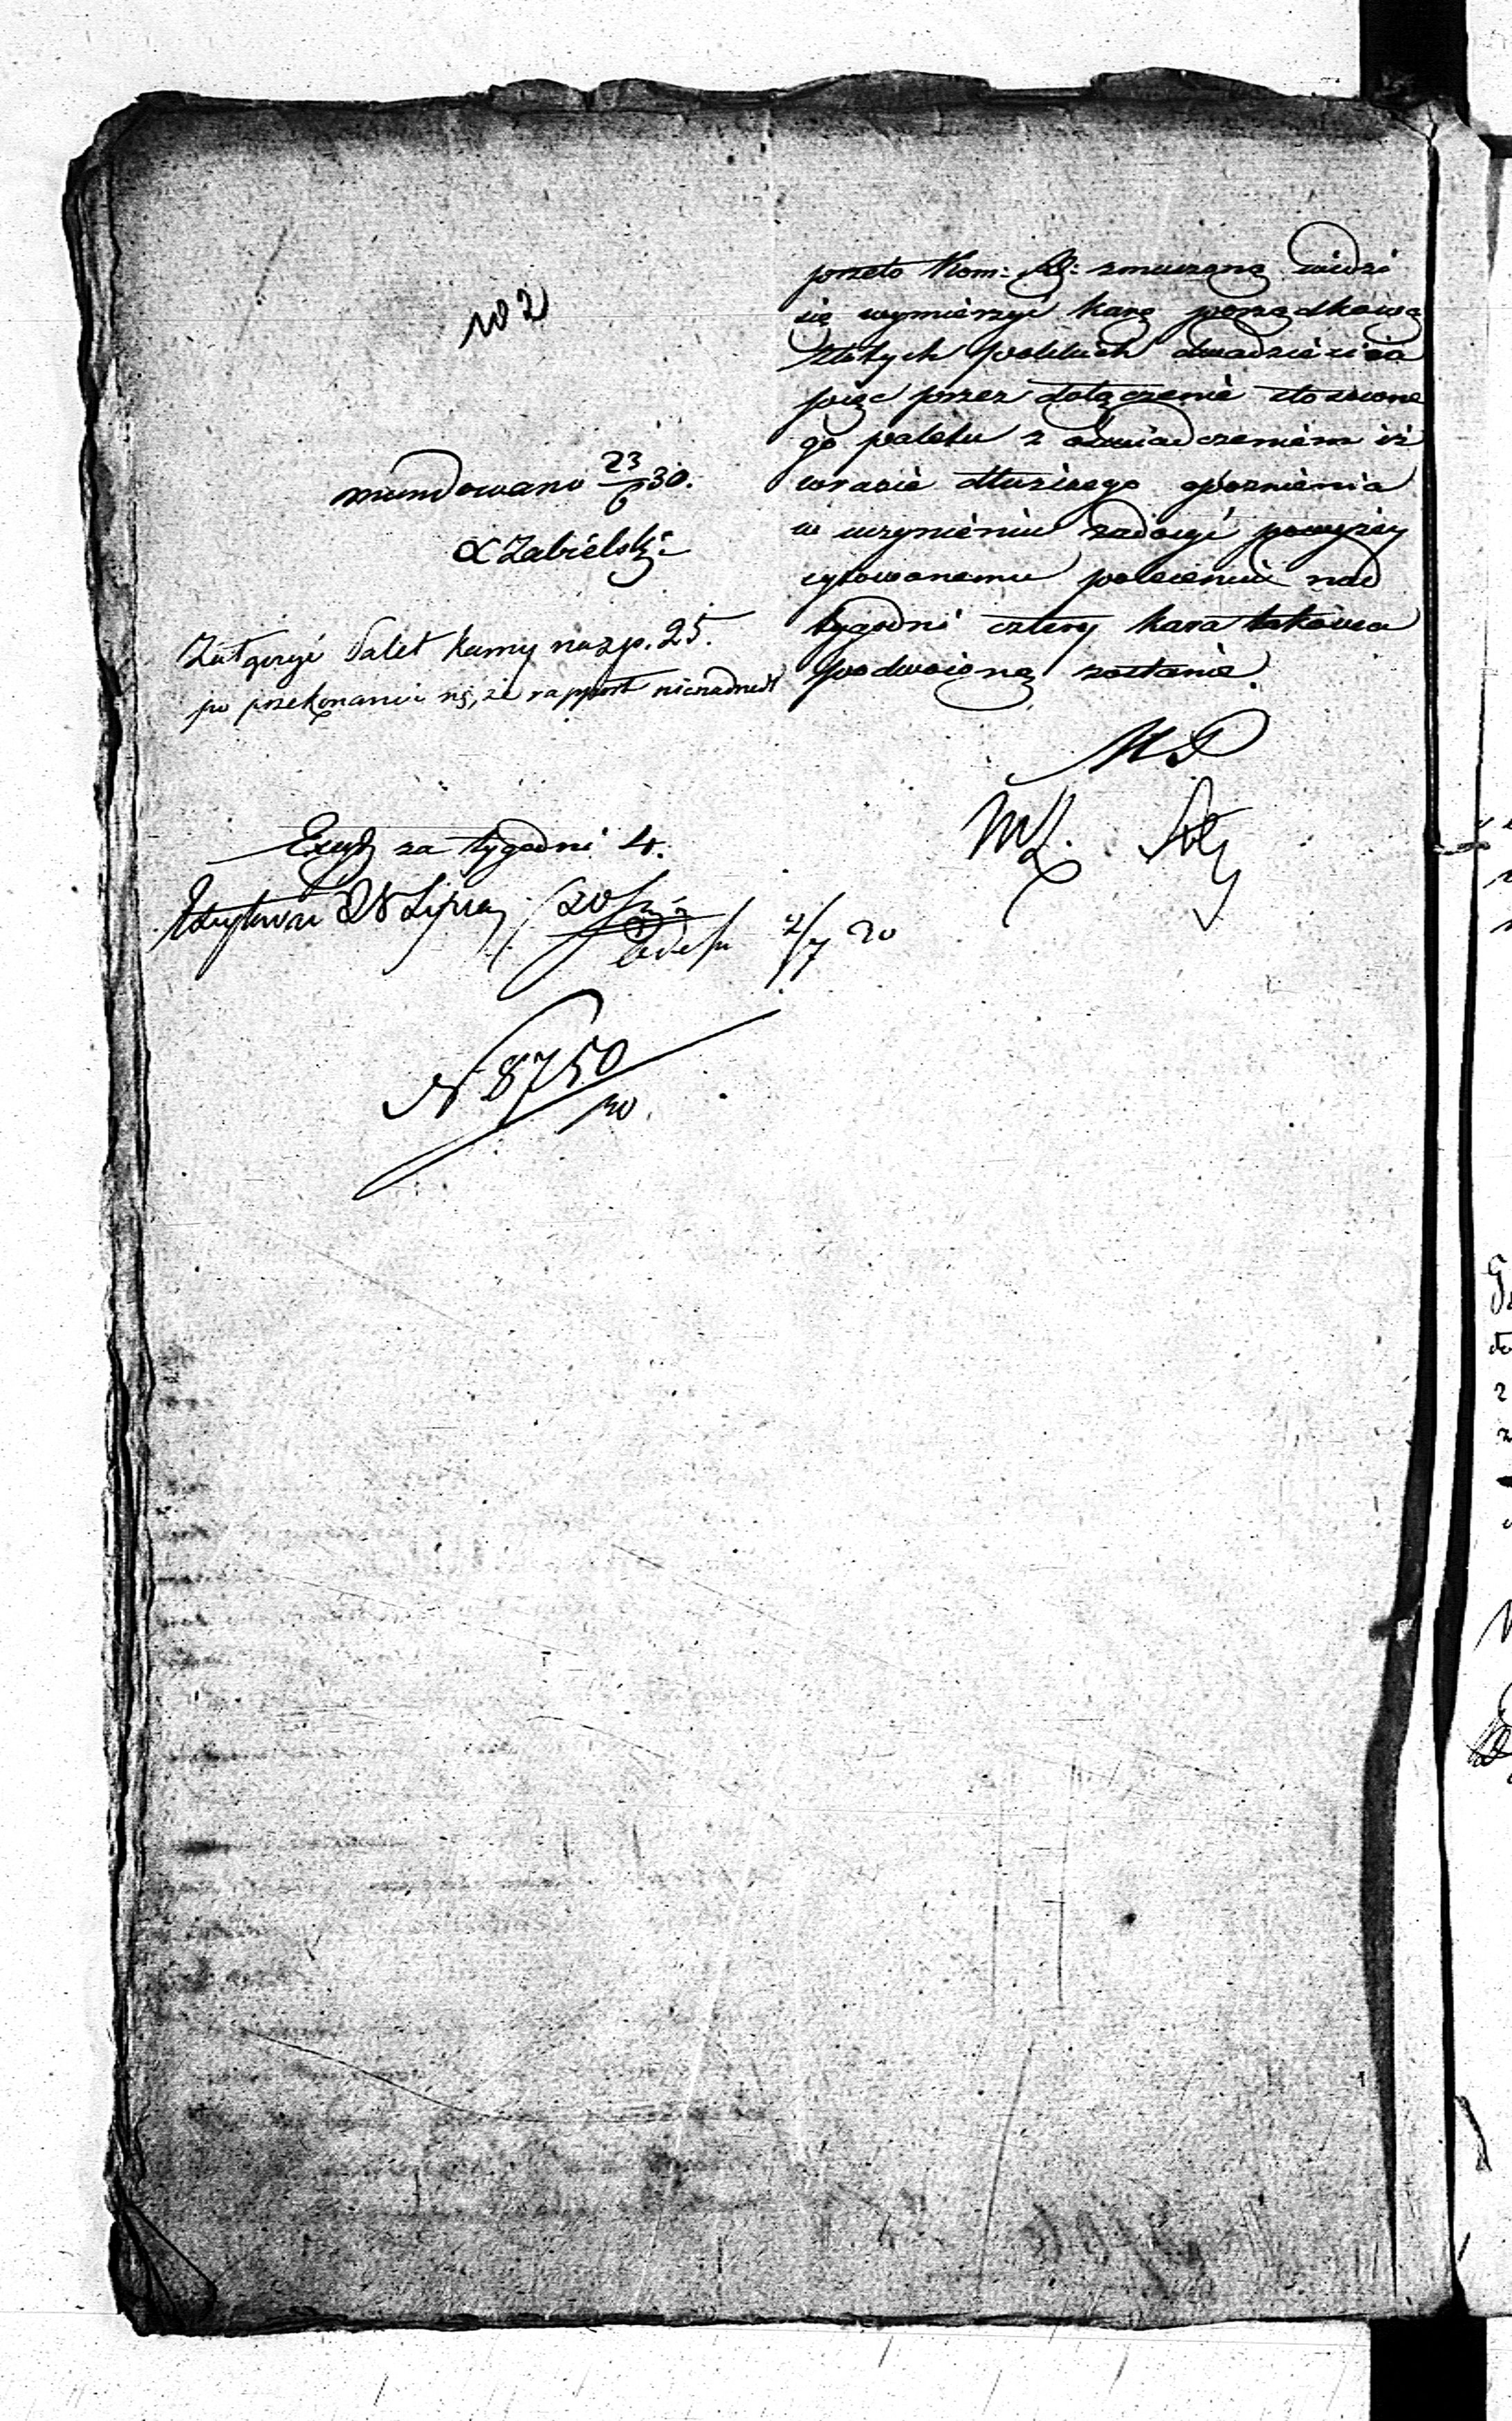 przeto Kom: W: zmuszoną widzi
się wymierzyć karę porządkową
złotych polskich dwadzieścia
pięć przez dołączenie stosowne
go paletu z oświadczeniem iż
wrazie dłuższego opoznienia
w uczynieniu zadosyć powyżey
cytowanemu poleceniu nad
tygodni cztery kara takowa
podwoioną zostanie.
mundowano 23/6 30.
Zabielski
Załączyć Palet karny na zp. 25.
po przekonaniu się, że rapport nienadszedł
Exeqt za tygodni 4.
Lipca
2/7 30
N 8750/30